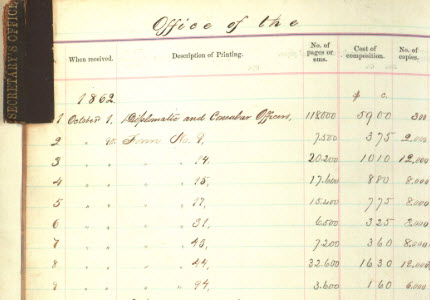 SECRETARY'S OFFICE
Office of the
When received. Description of Printing. No. of pages or ems. Cost of composition. No. of copies.
$ c.
1862
1 October 1. Diplomatic and Consular Officers, 118000 59 00 300
2 " 20. Form No. 9, 7500 3 75 2,000
3 " " " " 14, 20.200 10 10 12,000
4 " " " " 15, 17.600 8 80 8.000
5 " " " " 17, 15.400 7 75 8.000
6 " " " " 31, 6500 3 25 8.000
7 " " " " 43, 7200 3 60 8,000
8 " " " " 44, 32.600 16 30 12,000
9 " " " " 94, 3.600 1 60 6.000